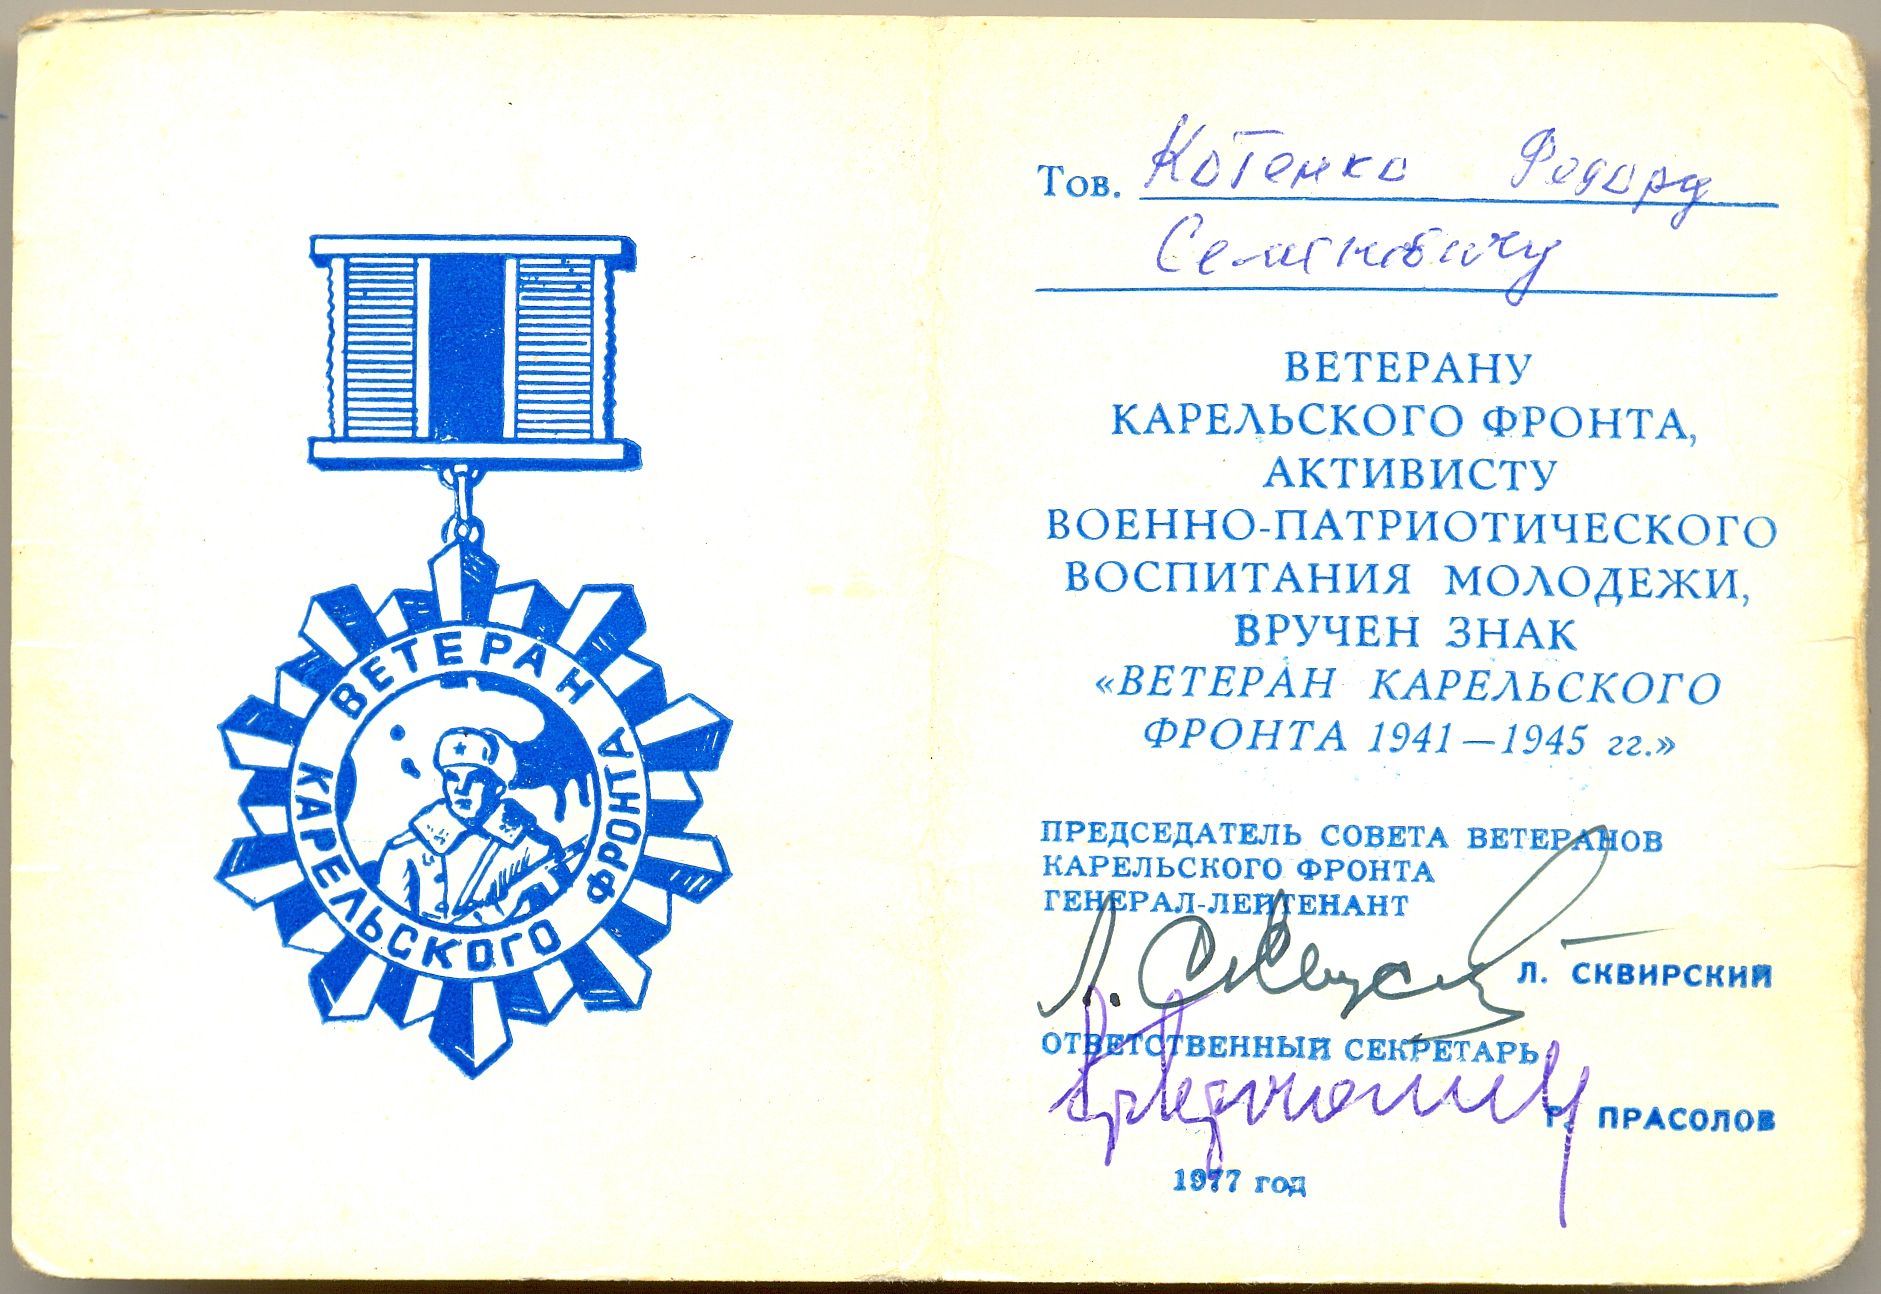 ВЕТЕРАН
КАРЕЛЬСКОГО ФРОНТА
Тов. Котенко Федору
Семеновичу
ВЕТЕРАНУ
КАРЕЛЬСКОГО ФРОНТА,
АКТИВИСТУ
ВОЕННО-ПАТРИОТИЧЕСКОГО
ВОСПИТАНИЯ МОЛОДЕЖИ,
ВРУЧЕН ЗНАК
«ВЕТЕРАН КАРЕЛЬСКОГО
ФРОНТА 1941—1945 гг.»
ПРЕДСЕДАТЕЛЬ СОВЕТА ВЕТЕРАНОВ
КАРЕЛЬСКОГО ФРОНТА
ГЕНЕРАЛ-ЛЕЙТЕНАНТ
Л. Сквирский
Л. СКВИРСКИЙ
ОТВЕТСТВЕННЫЙ СЕКРЕТАРЬ
Г. ПРАСОЛОВ
1977 год